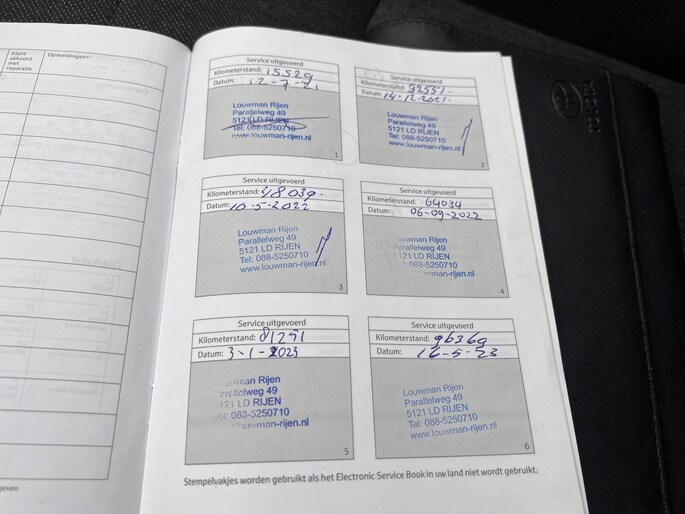 Klant
akkoord
met
reparatie
Opmerkingen**
Service uitgevoerd
Kilometerstand: 15529
Datum: 12-7-21
Louwman Rijen
Parallelweg 49
5121 LD RIJEN
Tel: 088-5250710
www.louwman-rijen.nl
1
Service uitgevoerd
Kilometerstand: 32551
Datum: 14-12-2021
Louwman Rijen
Parallelweg 49
5121 LD RIJEN
Tel: 088-5250710
www.louwman-rijen.nl
2
Service uitgevoerd
Kilometerstand: 48039
Datum: 10-5-2022
Louwman Rijen
Parallelweg 49
5121 LD RIJEN
Tel: 088-5250710
www.louwman-rijen.nl
3
Service uitgevoerd
Kilometerstand: 64034
Datum: 06-09-2022
Rijen
Parallelweg 49
5121 LD RIJEN
Tel: 088-5250710
www.louwman-rijen.nl
4
Service uitgevoerd
Kilometerstand: 81291
Datum: 3-1-2023
Rijen
49
LD RIJEN
5
Service uitgevoerd
Kilometerstand: 96369
Datum: 16-5-23
Louwman Rijen
Parallelweg 49
5121 LD RIJEN
Tel: 088-5250710
www.louwman-rijen.nl
6
Stempelvakjes worden gebruikt als het Electronic Service Book in uw land niet wordt gebruikt.
TOYOTA